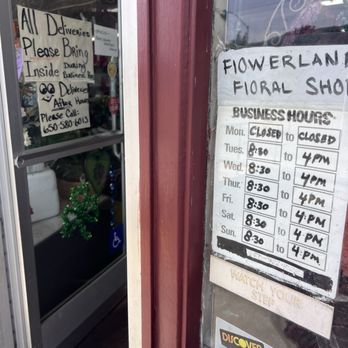 All Deliveries
Please Bring
Inside During
Business Hrs
Deliveries
After Hours
Please Call:
650 580 6013
Flowerland
Floral Shop
BUSINESS HOURS
Mon. CLOSED to CLOSED
Tues. 8:30 to 4PM
Wed. 8:30 to 4PM
Thur. 8:30 to 4PM
Fri. 8:30 to 4PM
Sat. 8:30 to 4PM
Sun. 8:30 to 4PM
WATCH YOUR
STEP
DISCOVER